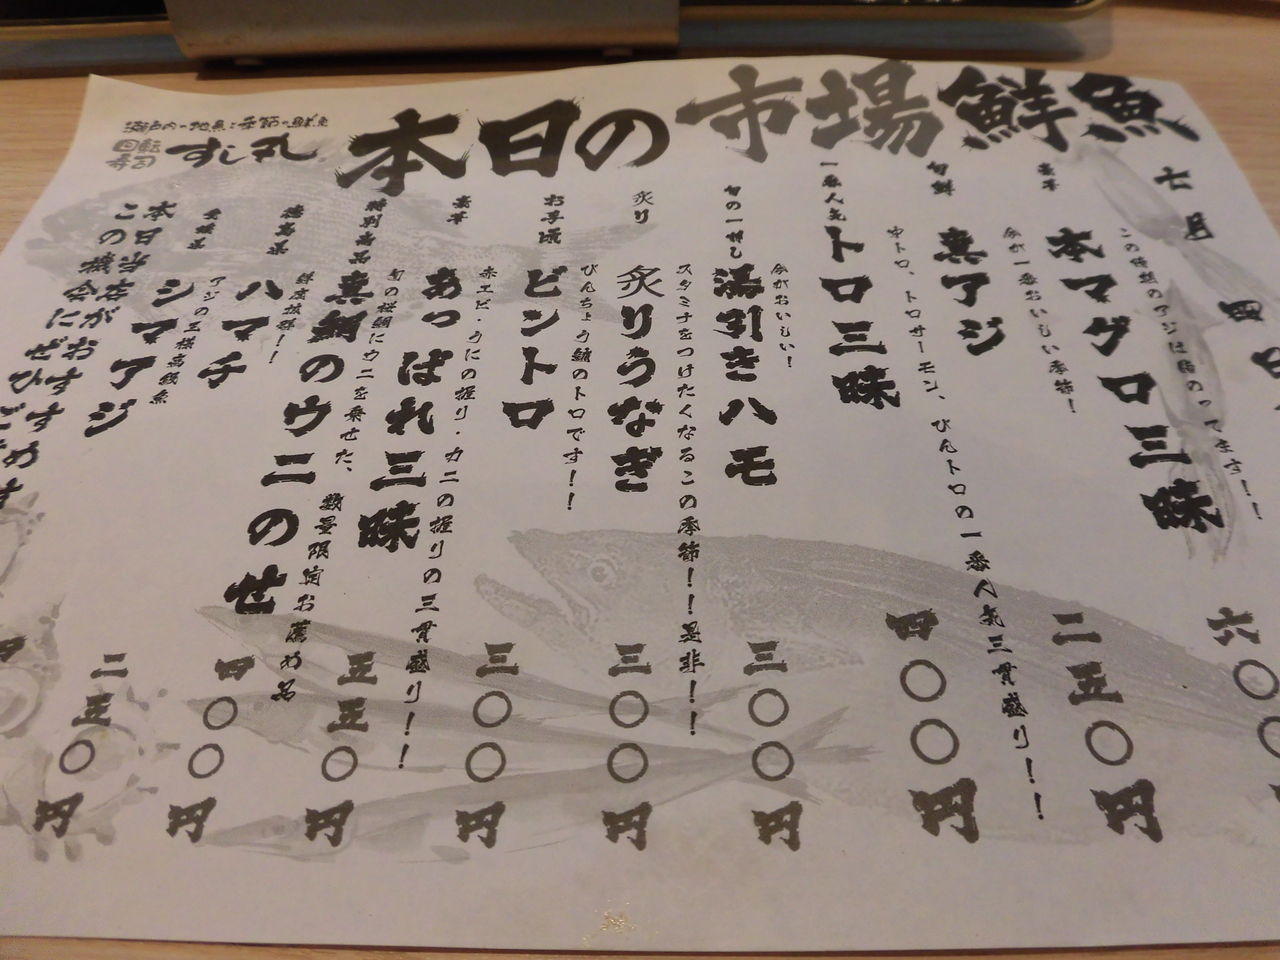 本日の市場鮮魚
瀬戸内の地魚と季節の鮮魚
回転寿司
すし丸
七月四日
この時期のアジは脂のってます!!
本マグロ三昧
六〇
今が一番おいしい季節!
真アジ
二五〇円
中トロ、トロサーモン、びんトロの一番人気三貫盛り!!
一番人気
トロ三昧
四〇〇円
今がおいしい!
湯引きハモ
三〇〇円
スタミナをつけたくなるこの季節!!是非!!
炙り
炙りうなぎ
三〇〇円
びんちょう鮪のトロです!!
お手頃
ビントロ
三〇〇円
赤エビ・うにの握り・カニの握りの三貫盛り!!
あっぱれ三昧
五五〇円
旬の桜鯛にウニを乗せた、数量限定お薦め品
真鯛のウニのせ
四〇〇円
鮮度抜群!!
ハマチ
二五〇円
アジの王様高級魚
シマアジ
四
本日当店がおすすめ
この機会にぜひ